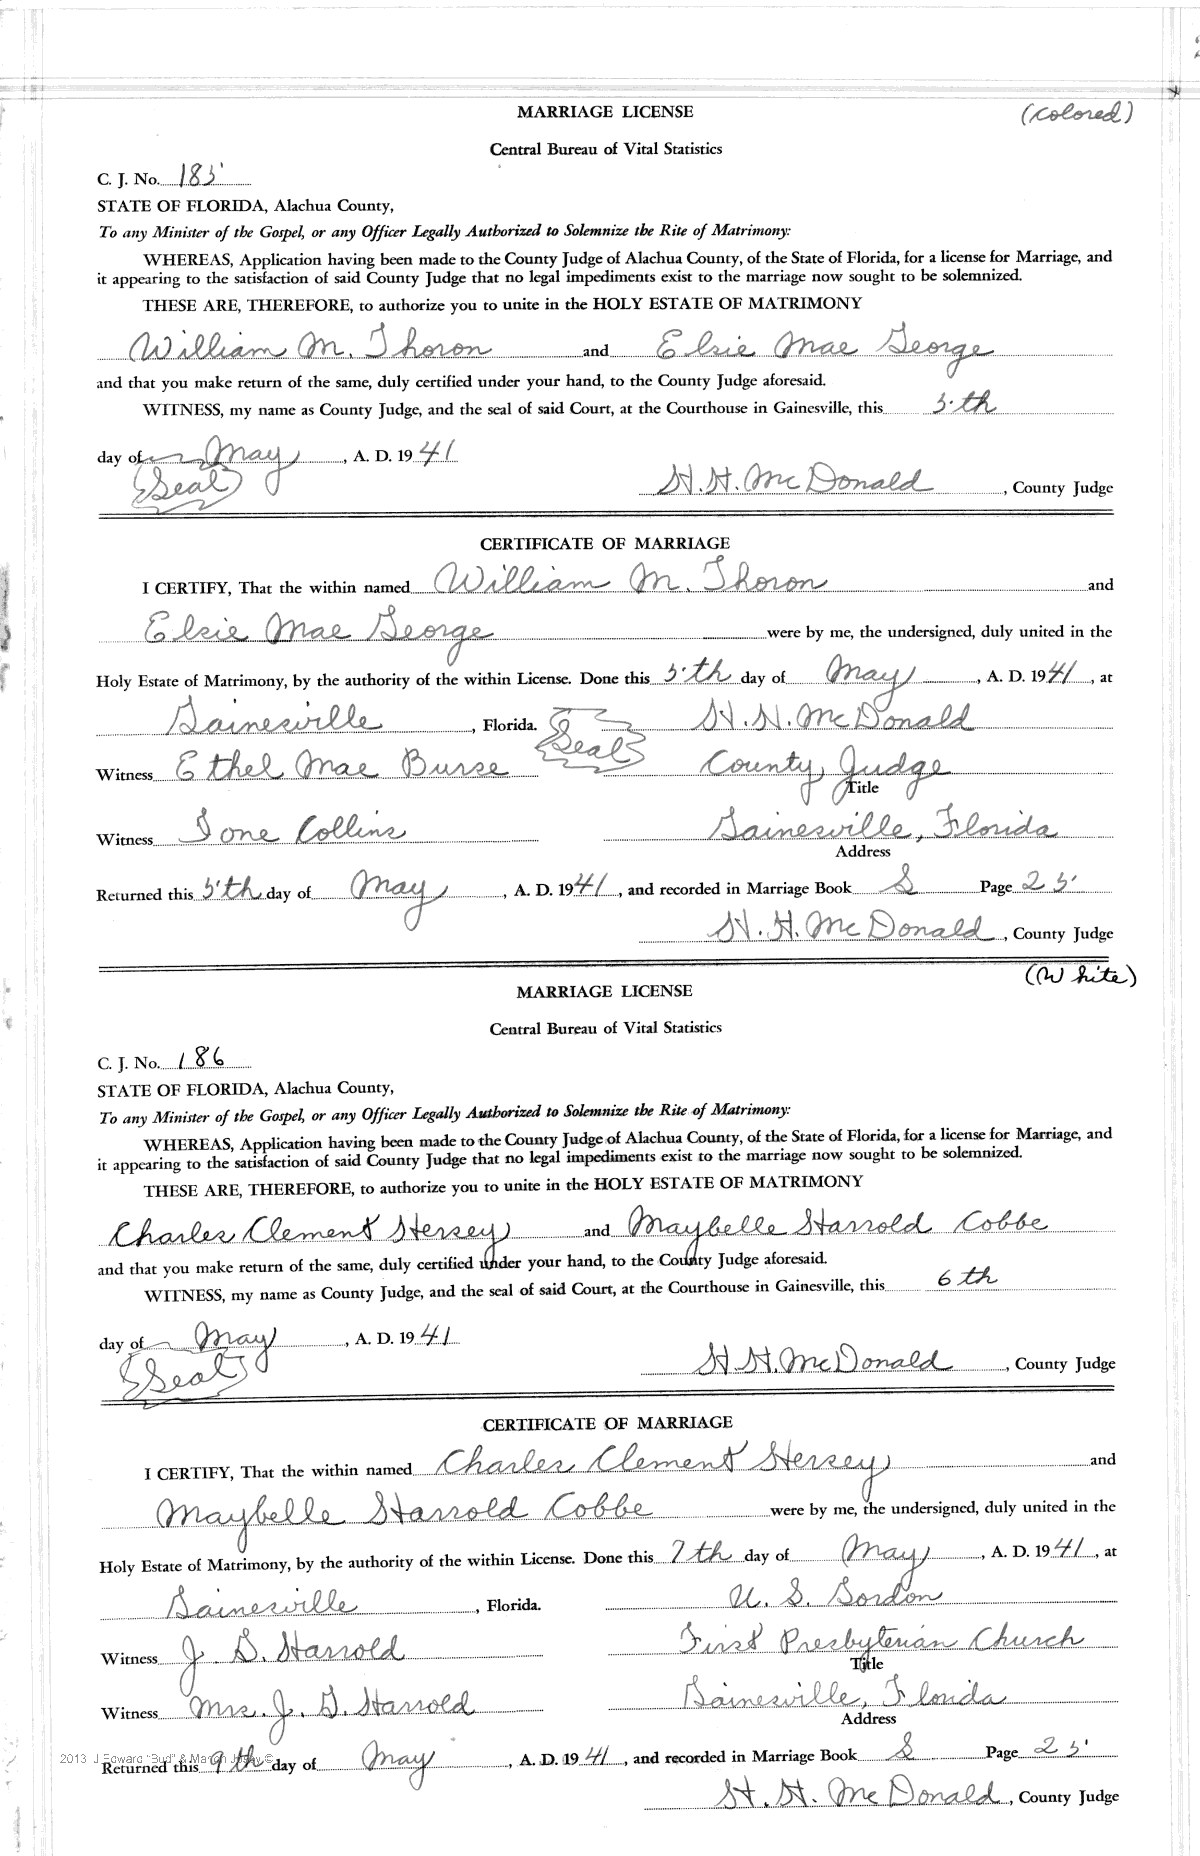 MARRIAGE LICENSE (colored)
Central Bureau of Vital Statistics
C. J. No. 185
STATE OF FLORIDA, Alachua County,
To any Minister of the Gospel, or any Officer Legally Authorized to Solemnize the Rite of Matrimony:
WHEREAS, Application having been made to the County Judge of Alachua County, of the State of Florida, for a license for Marriage, and
it appearing to the satisfaction of said County Judge that no legal impediments exist to the marriage now sought to be solemnized.
THESE ARE, THEREFORE, to authorize you to unite in the HOLY ESTATE OF MATRIMONY
William M. Thoron and Elsie Mae George
and that you make return of the same, duly certified under your hand, to the County Judge aforesaid.
WITNESS, my name as County Judge, and the seal of said Court, at the Courthouse in Gainesville, this 5th
day of May, A. D. 1941
(Seal) H. H. McDonald, County Judge
CERTIFICATE OF MARRIAGE
I CERTIFY, That the within named William M. Thoron and
Elsie Mae George were by me, the undersigned, duly united in the
Holy Estate of Matrimony, by the authority of the within License. Done this 5th day of May, A. D. 1941, at
Gainesville, Florida. (Seal) H. H. McDonald
Witness Ethel Mae Burse County Judge
Title
Witness Ione Collins Gainesville, Florida
Address
Returned this 5th day of May, A. D. 1941, and recorded in Marriage Book S Page 25
H. H. McDonald, County Judge
(White)
MARRIAGE LICENSE
Central Bureau of Vital Statistics
C. J. No. 186
STATE OF FLORIDA, Alachua County,
To any Minister of the Gospel, or any Officer Legally Authorized to Solemnize the Rite of Matrimony:
WHEREAS, Application having been made to the County Judge of Alachua County, of the State of Florida, for a license for Marriage, and
it appearing to the satisfaction of said County Judge that no legal impediments exist to the marriage now sought to be solemnized.
THESE ARE, THEREFORE, to authorize you to unite in the HOLY ESTATE OF MATRIMONY
Charles Clement Hersey and Maybelle Harrold Cobbe
and that you make return of the same, duly certified under your hand, to the County Judge aforesaid.
WITNESS, my name as County Judge, and the seal of said Court, at the Courthouse in Gainesville, this 6th
day of May, A. D. 1941
(Seal) H. H. McDonald, County Judge
CERTIFICATE OF MARRIAGE
I CERTIFY, That the within named Charles Clement Hersey and
Maybelle Harrold Cobbe were by me, the undersigned, duly united in the
Holy Estate of Matrimony, by the authority of the within License. Done this 7th day of May, A. D. 1941, at
Gainesville, Florida. U. S. Gordon
Witness J. G. Harrold First Presbyterian Church
Title
Witness Mrs. J. G. Harrold Gainesville, Florida
Address
2013 J Edward "Bud" & Marion ©
Returned this 9th day of May, A. D. 1941, and recorded in Marriage Book S Page 25
H. H. McDonald, County Judge